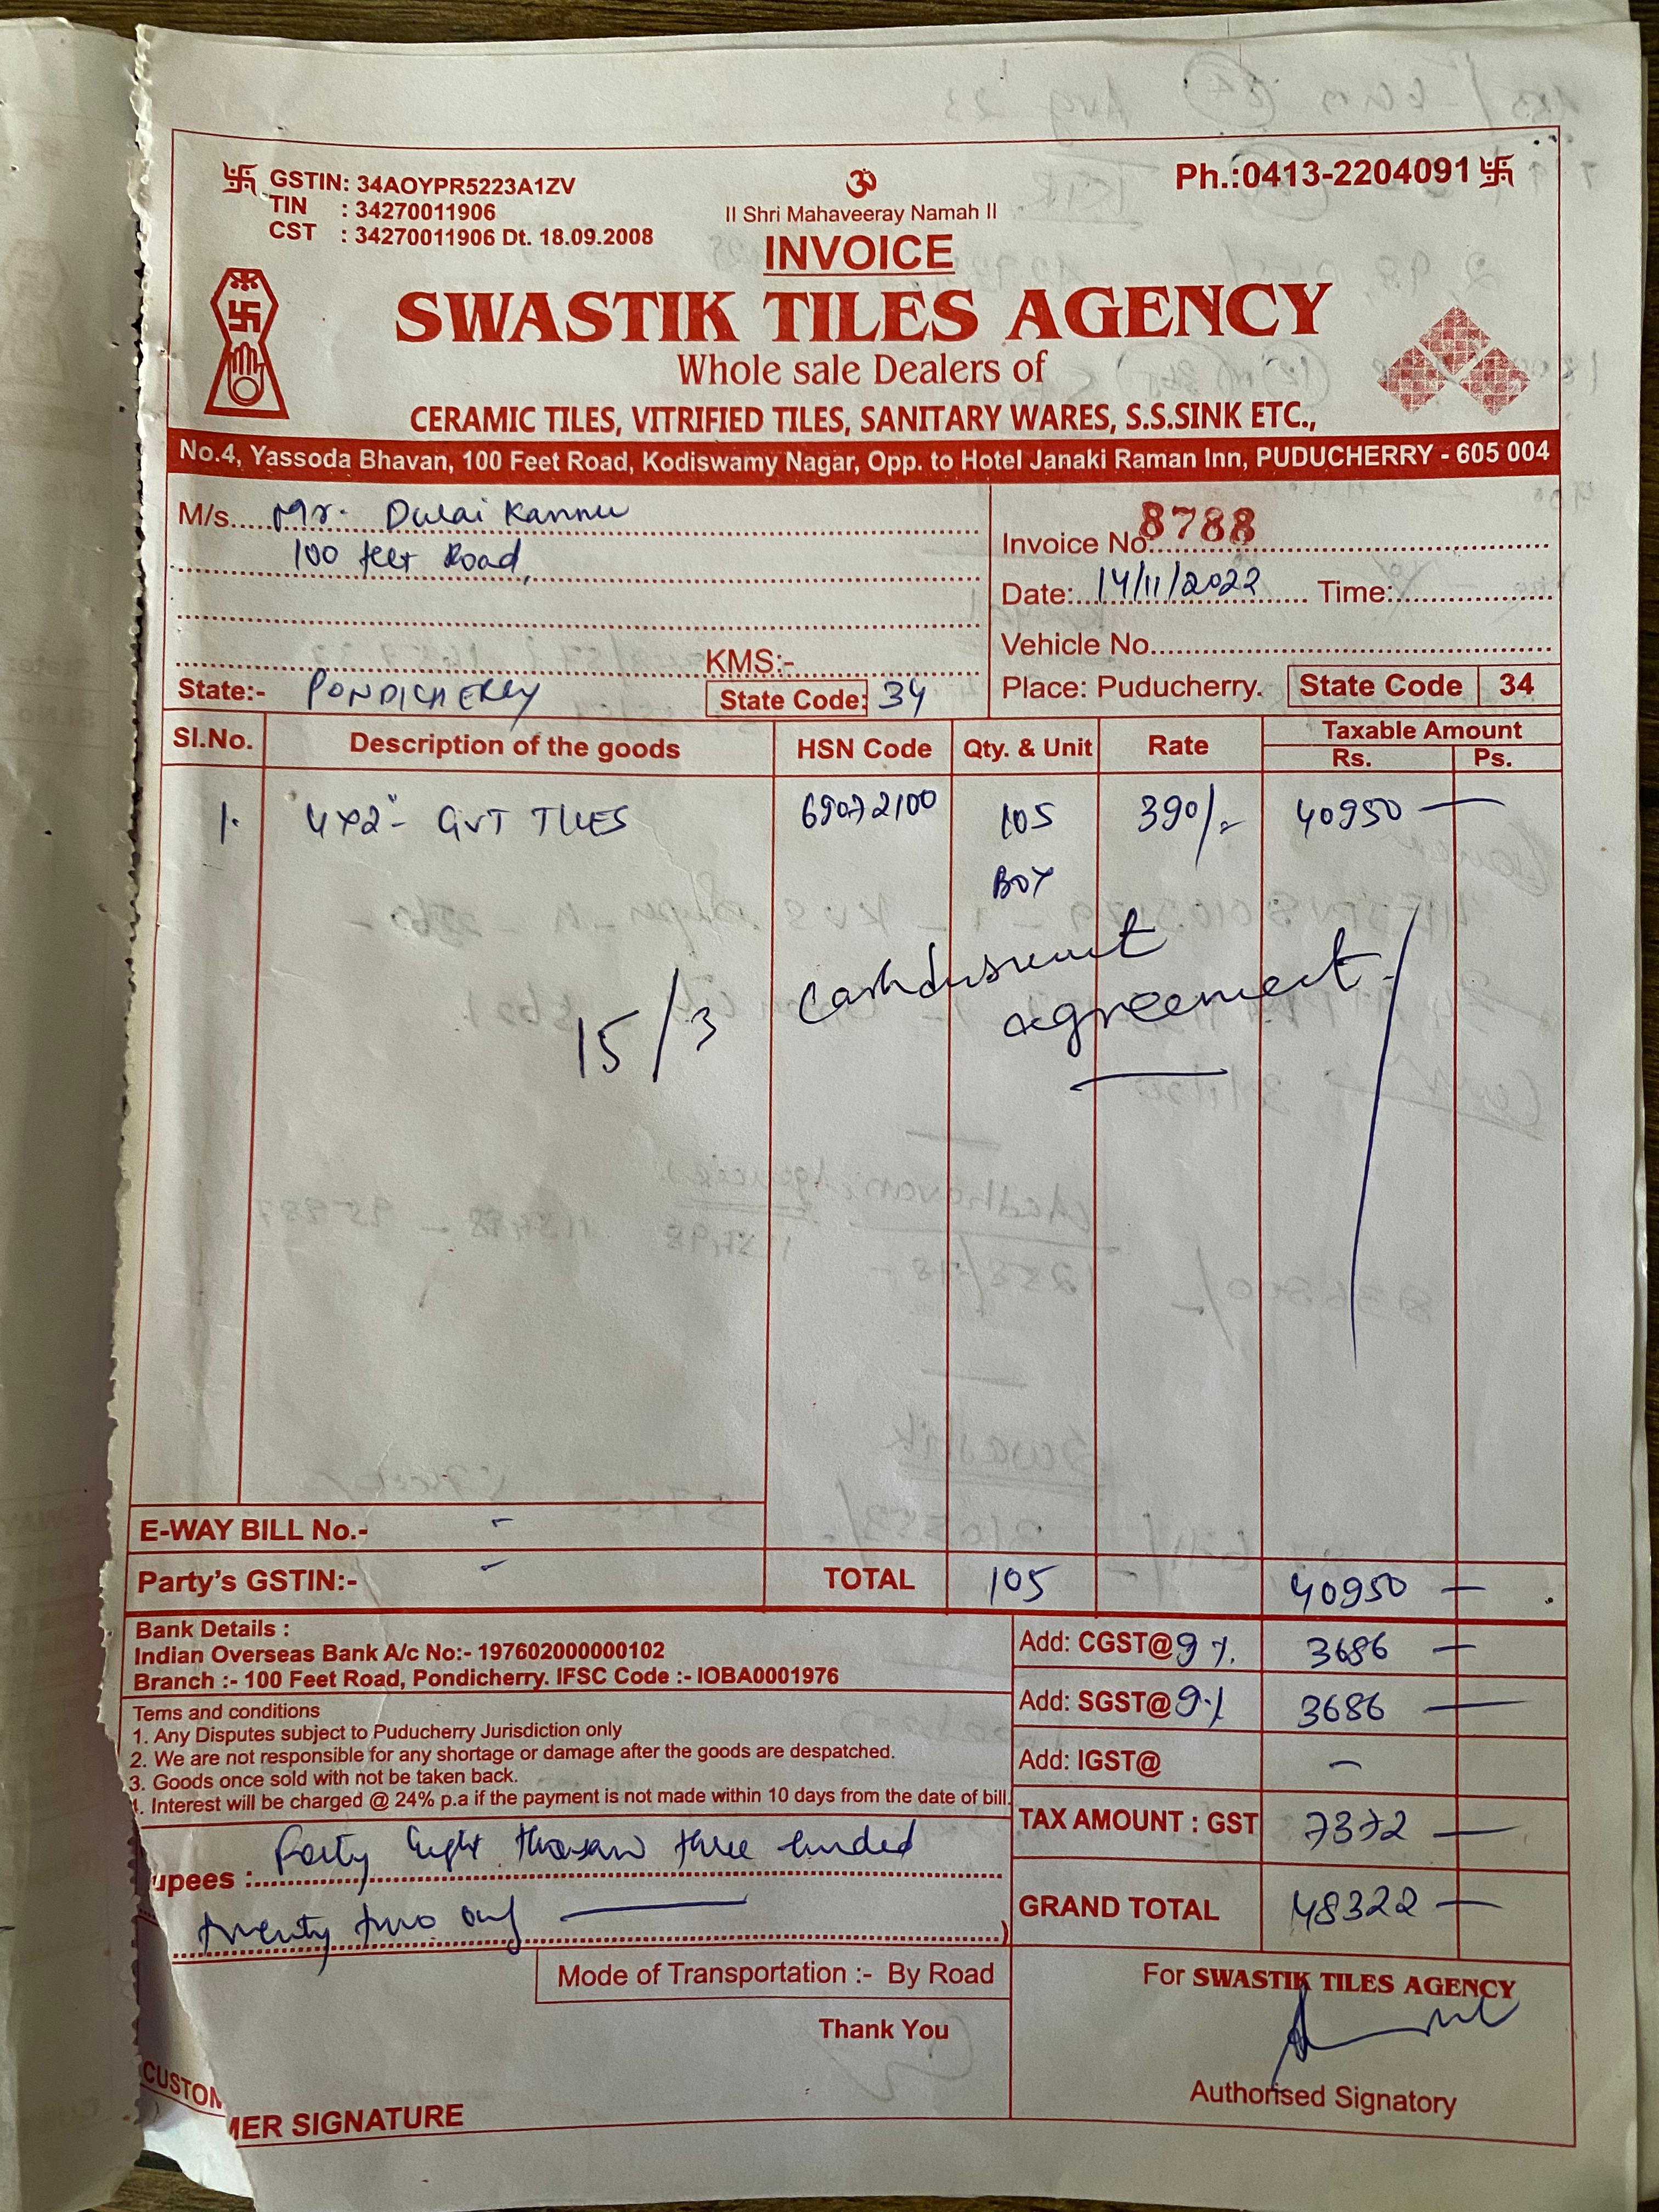 GSTIN: 34AOYPR5223A1ZV
TIN : 34270011906
CST : 34270011906 Dt. 18.09.2008
ॐ
II Shri Mahaveeray Namah II
Ph.:0413-2204091
INVOICE
SWASTIK TILES AGENCY
Whole sale Dealers of
CERAMIC TILES, VITRIFIED TILES, SANITARY WARES, S.S.SINK ETC.,
No.4, Yassoda Bhavan, 100 Feet Road, Kodiswamy Nagar, Opp. to Hotel Janaki Raman Inn, PUDUCHERRY - 605 004
M/s. Mr. Dulai Kannu
100 feet Road,
KMS:-
State:- PONDICHERRY State Code: 34
Invoice No. 8788
Date: 14/11/2022 Time:
Vehicle No.
Place: Puducherry. State Code 34
Sl.No. Description of the goods HSN Code Qty. & Unit Rate Taxable Amount
Rs. Ps.
1. 4x2" - GVT TILES 69072100 105 390/- 40950 —
BOX
15/3 cash
agreement
E-WAY BILL No.- -
Party's GSTIN:- - TOTAL 105 40950 —
Bank Details :
Indian Overseas Bank A/c No:- 197602000000102
Branch :- 100 Feet Road, Pondicherry. IFSC Code :- IOBA0001976
Tems and conditions
1. Any Disputes subject to Puducherry Jurisdiction only
2. We are not responsible for any shortage or damage after the goods are despatched.
3. Goods once sold with not be taken back.
. Interest will be charged @ 24% p.a if the payment is not made within 10 days from the date of bill.
Add: CGST@ 9% 3686 —
Add: SGST@ 9% 3686 —
Add: IGST@ -
TAX AMOUNT : GST 7372 —
GRAND TOTAL 48322 —
upees : Forty Eight three
twenty two only —
)
Mode of Transportation :- By Road
Thank You
CUSTOM
MER SIGNATURE
For SWASTIK TILES AGENCY
Authorised Signatory